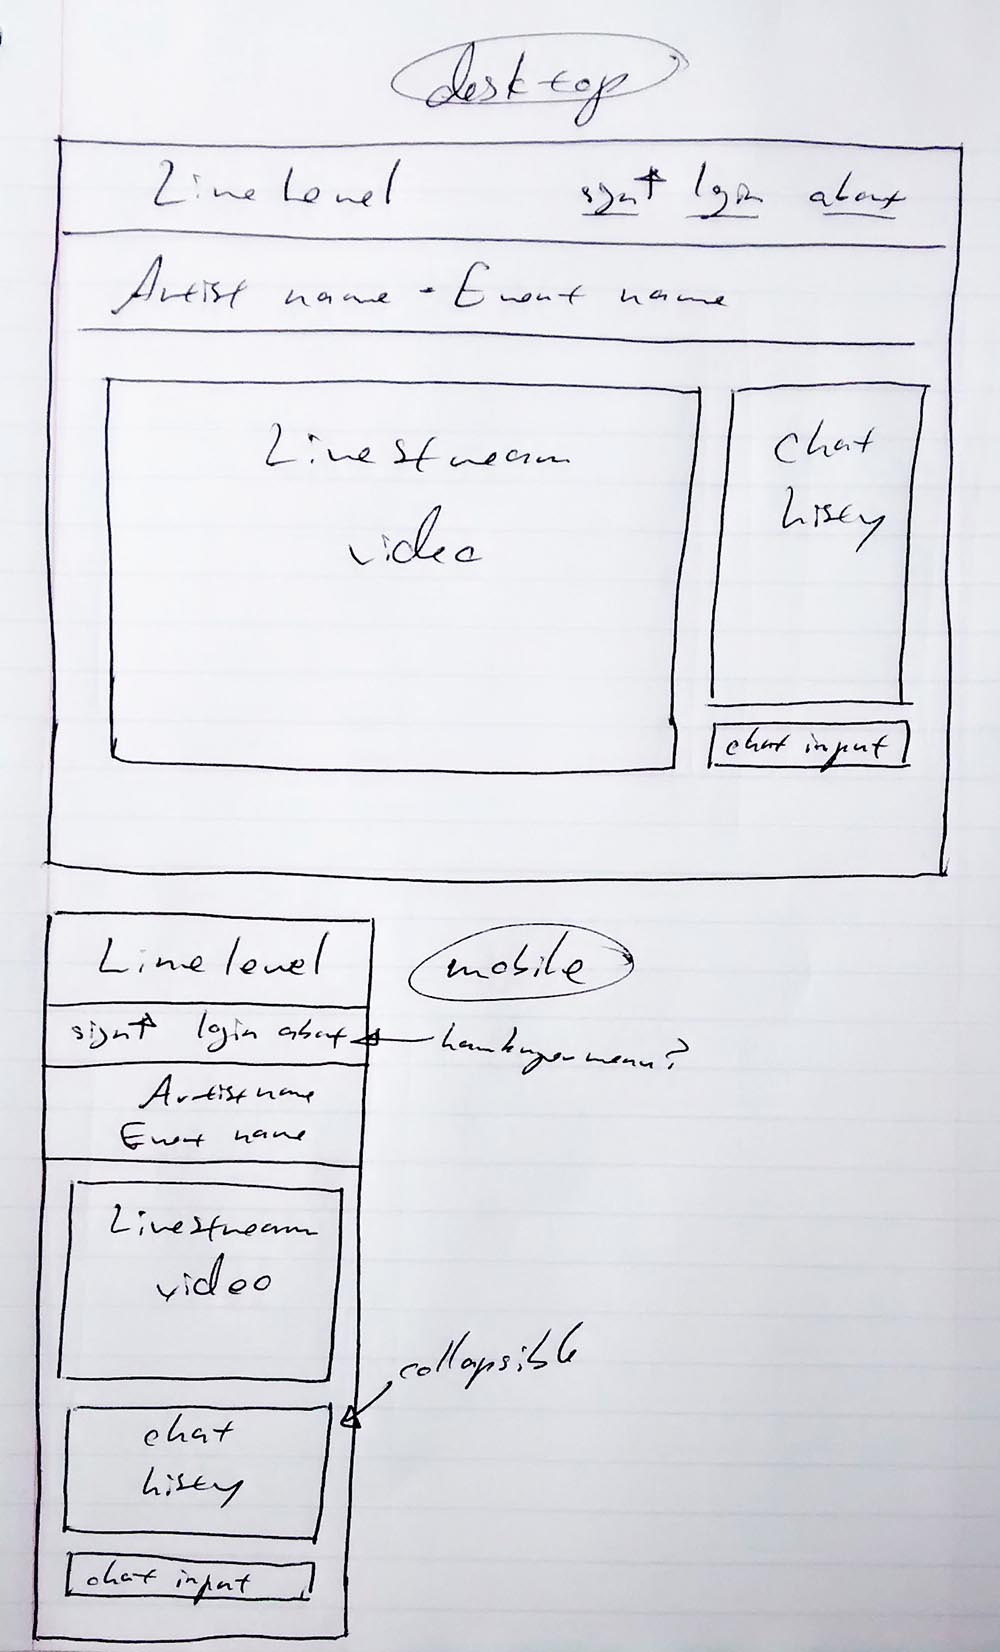 desktop
Line Level
signup login about
Artist name - Event name
Livestream
video
chat
history
chat input
Line level
mobile
signup login about
hamburger menu?
Artist name
Event name
Livestream
video
collapsible
chat
history
chat input